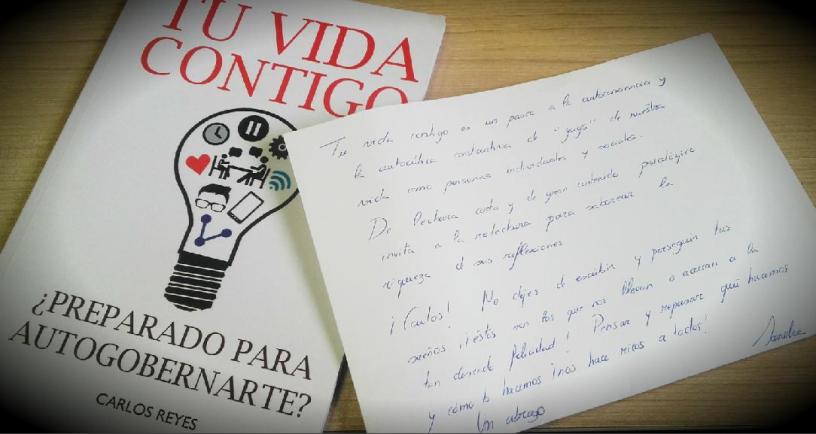 TU VIDA
CONTIGO
¿PREPARADO PARA
AUTOGOBERNARTE?
CARLOS REYES
Tu vida contigo es un paseo a la autoconciencia y
la autocrítica constructiva de "yoga" de nuestra
vida como personas individuales y sociales.
De lectura corta y de gran contenido psicológico
invita a la relectura para saborear la
riqueza d sus reflexiones
¡Carlos! No dejes d escribir y perseguir tus
sueños ¡éstos son los que nos llevan o acercan a la
tan deseada felicidad! Pensar y repasar qué hacemos
y cómo lo hacemos ¡nos hace mejores a todos!
Un abrazo